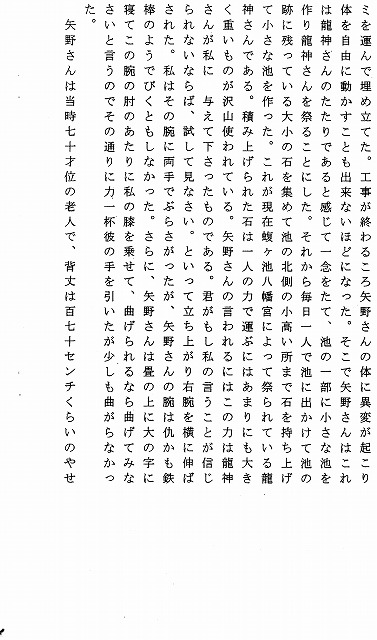 ミを運んで埋め立てた。工事が終わるころ矢野さんの体に異変が起こり
体を自由に動かすことも出来ないほどになった。そこで矢野さんはこれ
は龍神さんのたたりであると感じて一念をたて、池の一部に小さな池を
作り龍神さんを祭ることにした。それから毎日一人で池に出かけて池の
跡に残っている大小の石を集めて池の北側の小高い所まで石を持ち上げ
て小さな池を作った。これが現在蝮ヶ池八幡宮によって祭られている龍
神さんである。積み上げられた石は一人の力で運ぶにはあまりにも大き
く重いものが沢山使われている。矢野さんの言われるにはこの力は龍神
さんが私に　与えて下さったものである。君がもし私の言うことが信じ
られないならば、試して見なさい。といって立ち上がり右腕を横に伸ば
された。私はその腕に両手でぶらさがったが、矢野さんの腕は仇かも鉄
棒のようでびくともしなかった。さらに、矢野さんは畳の上に大の字に
寝てこの腕の肘のあたりに私の膝を乗せて、曲げられるなら曲げてみな
さいと言うのでその通りに力一杯彼の手を引いたが少しも曲がらなかっ
た。
　矢野さんは当時七十才位の老人で、背丈は百七十センチくらいのやせ